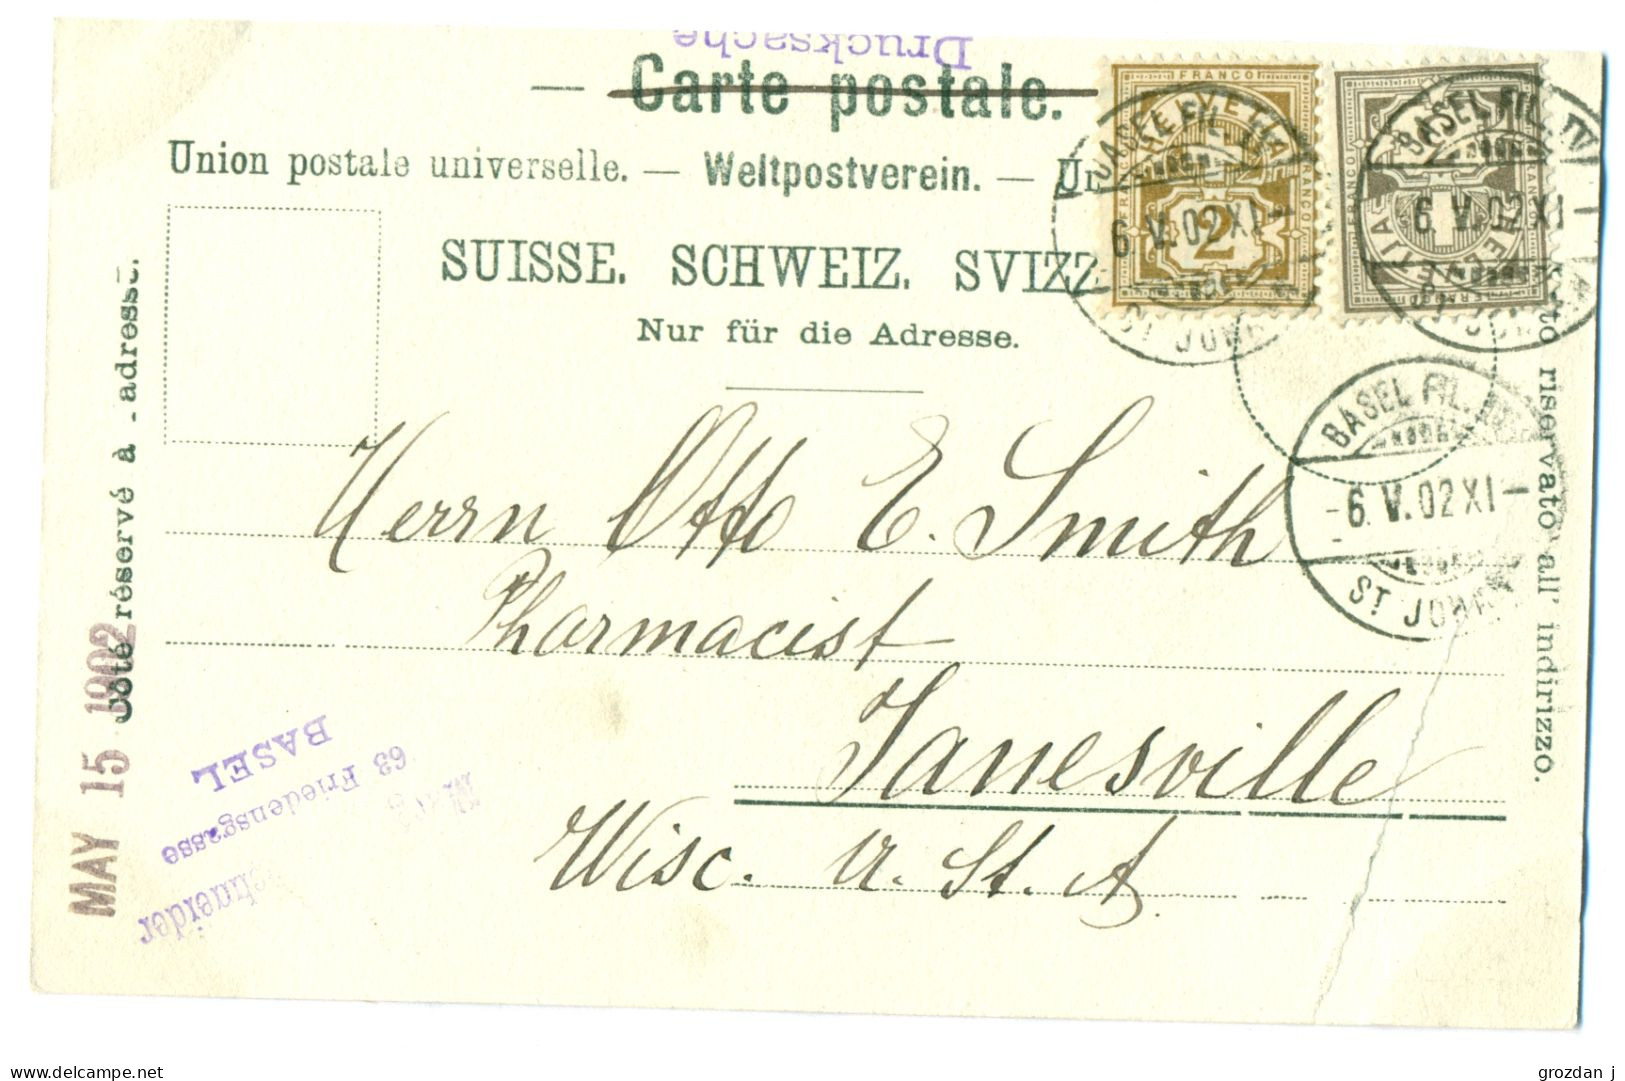 Drucksache
— Carte postale.
Union postale universelle. — Weltpostverein. — Un
SUISSE. SCHWEIZ. SVIZZ
Nur für die Adresse.
FRANCO
HELVETIA
FRANCO
FRANCO
2
BASEL FIL. IV
6. V. 02 XI –
FRANCO
FRANCO
HELVETIA
BASEL FIL. IV
6. V. 02 XI –
BASEL FIL. IV
- 6. V. 02 XI –
ST JOHANN
Côté réservé à l'adresse.
riservato all' indirizzo.
Herrn Otto E. Smith
Pharmacist
Janesville
Wisc. U. St. A.
MAY 15 1902
63 Friedensgasse
BASEL
grozdan j